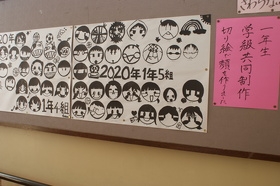 20年
2020年1年5組
1年4組
一年生
学級共同制作
切り絵